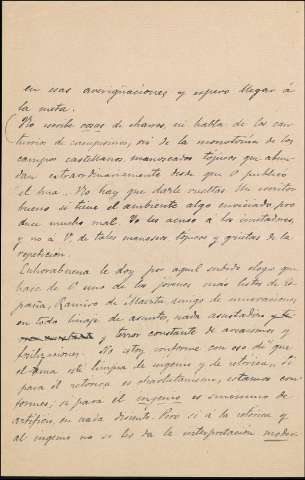 en esas averiguaciones, y espero llegar á
la meta.
No escribe cosas de charros, ni habla de las con-
de campesinos, ni de la monotonía de los
campos castellanos, manoseados tópicos que abun-
dan extraordinariamente desde que V. publicó
el suyo. No hay que darle vueltas. Un escritor
bueno si tiene el ambiente algo enviciado pro
duce mucho mal. Yo les acuso a los imitadores,
y no á V. de tales manoseos, tópicos y grietas de la
repetición.
Enhorabuena le doy por aquel subido elogio que
hace de V. uno de los jóvenes más listos de Es-
paña, Ramiro de Maeztu amigo de innovaciones,
en todo linaje de asuntos, nada asustadizo y
y terror constante de arcaismos y
No estoy conforme con eso de que
el alma esté limpia de ingenio y de retórica. Si
para él retórica es charlatanismo, estamos con-
formes; si para él ingenio es sinónimo de
artificio, en nada disiento. Pero si á la retórica y
al ingenio no se les da la interpretación moder-